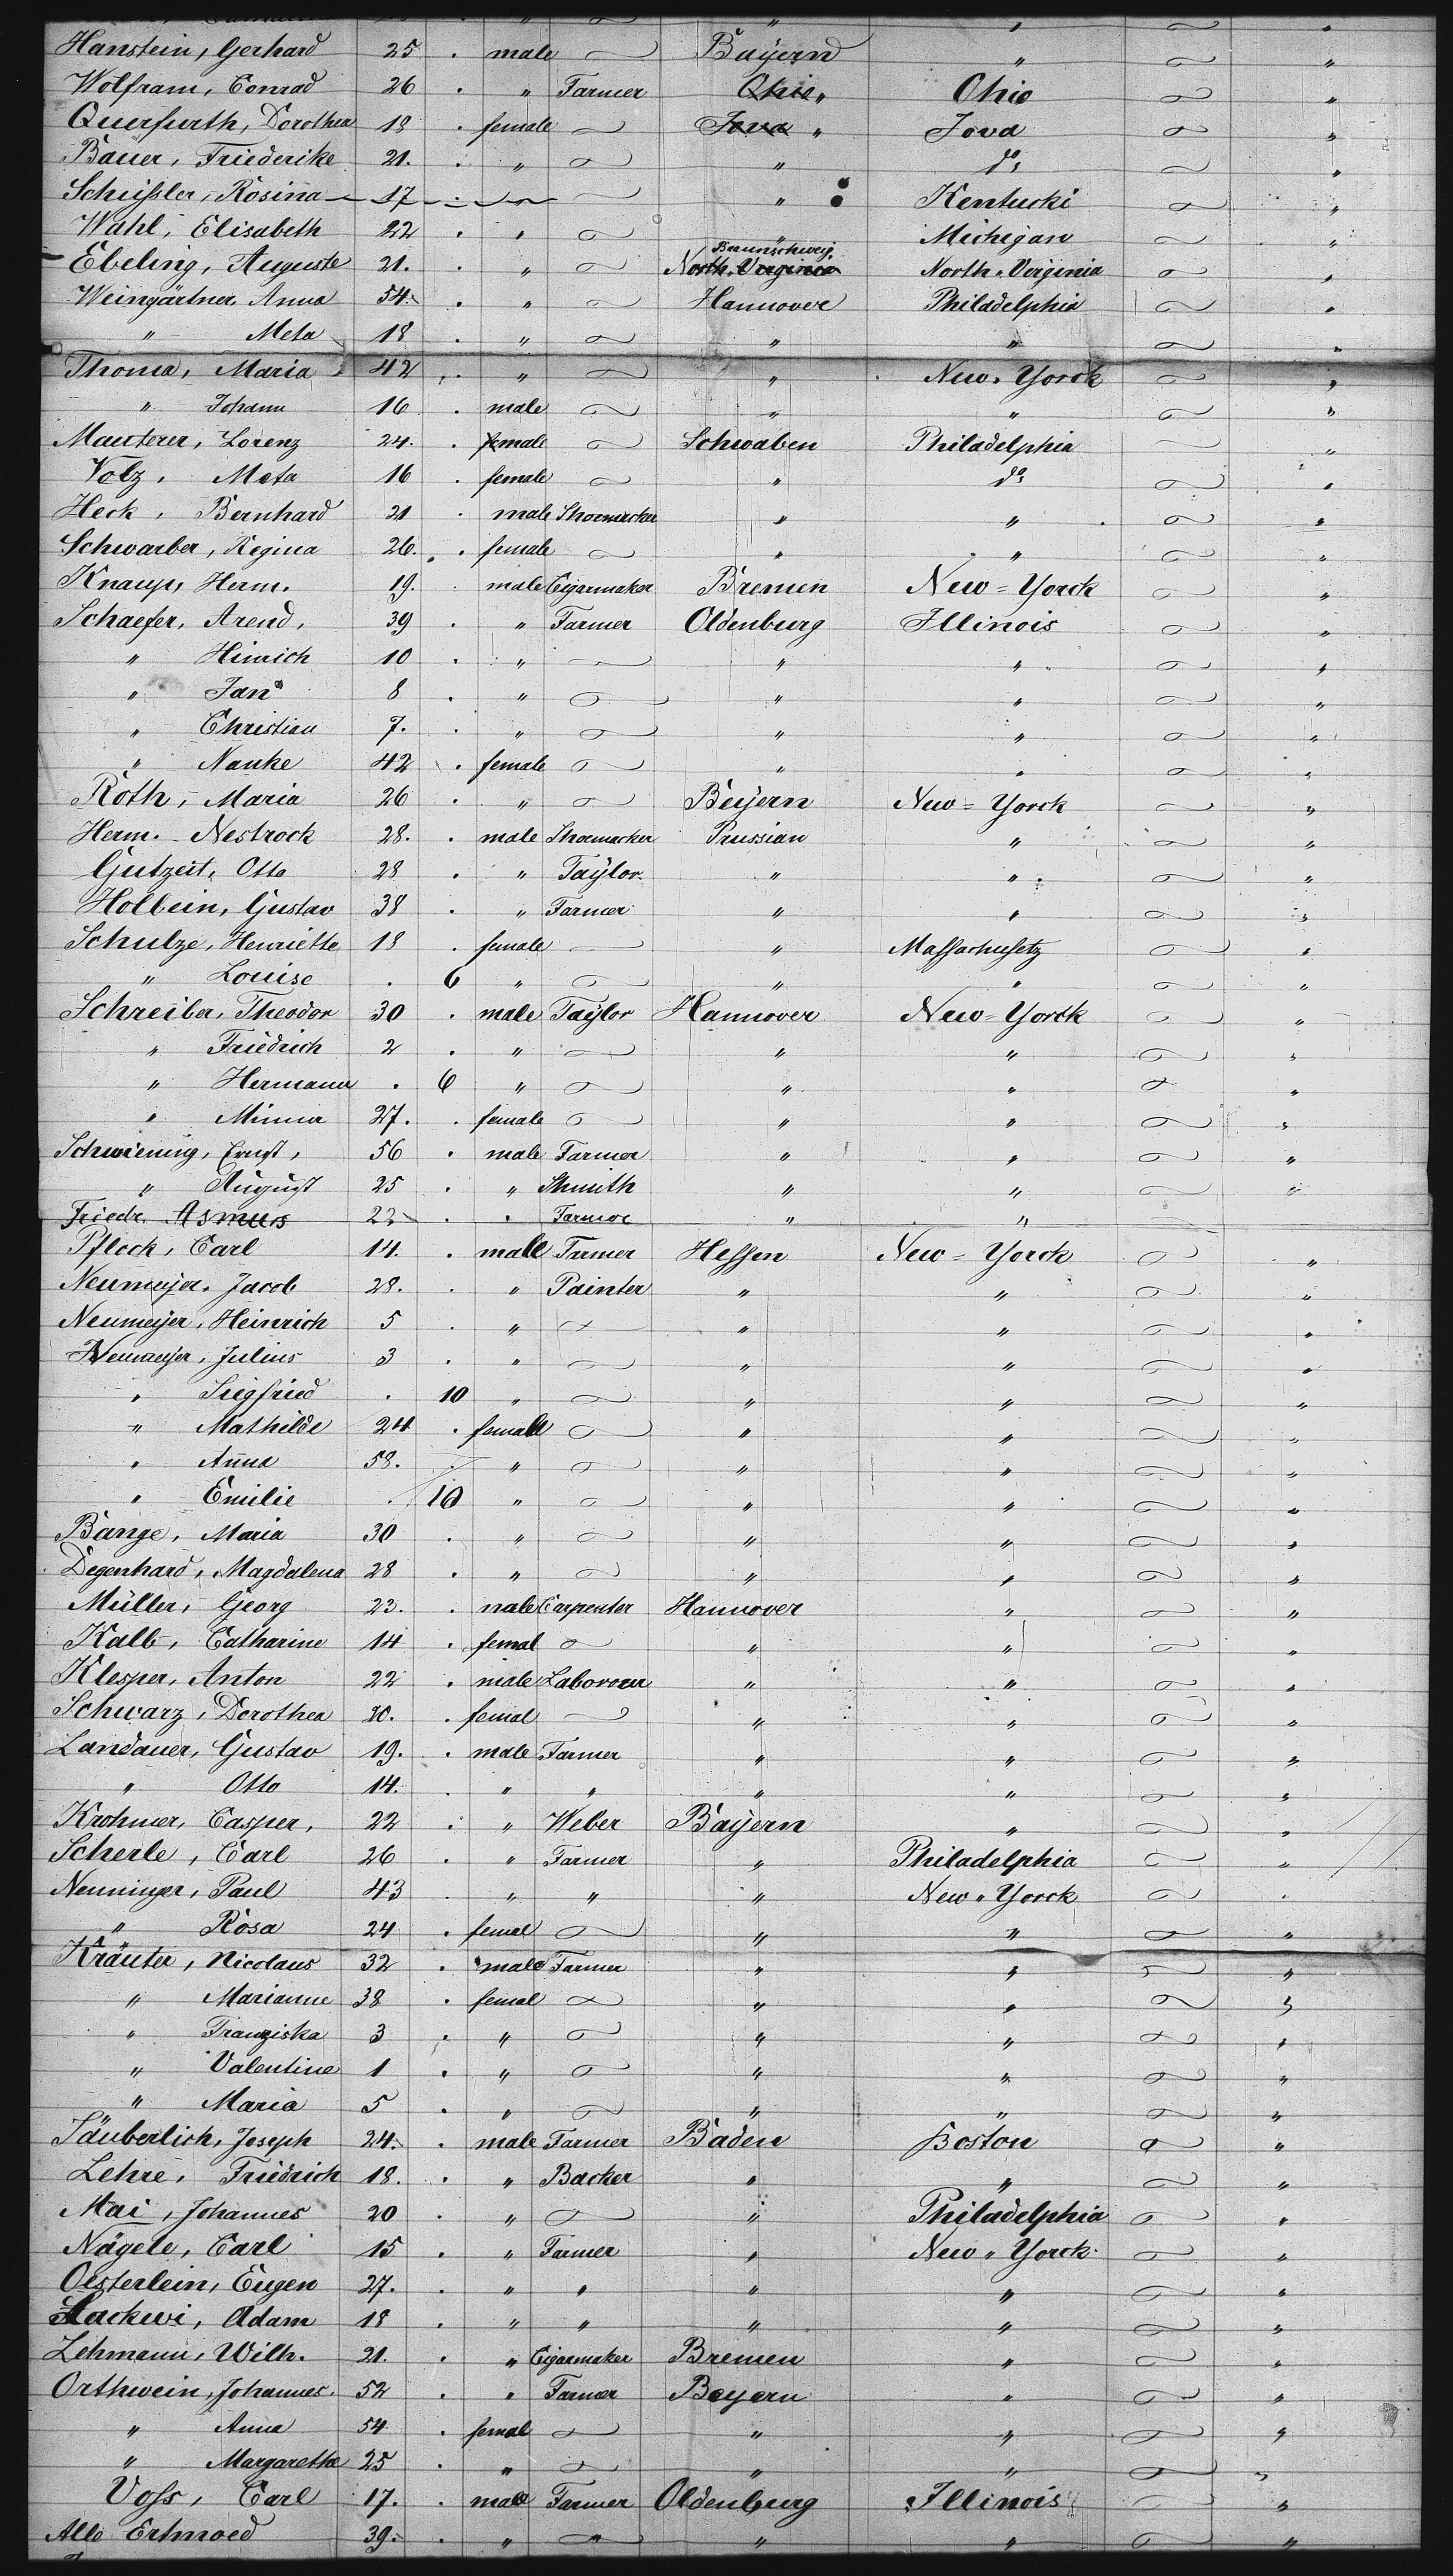 Hanstein, Gerhard 25 . male Bayern " "
Wolfram, Conrad 26 . " Farmer Ohio " Ohio "
Querfurth, Dorothea 18 . female Iova " Iova "
Bauer, Friederike 21. . " " do "
Schüssler, Rosina 17 . " " Kentucki "
Wahl, Elisabeth 22 . " " Michigan "
Ebeling, Auguste 21. . " Braunschweig. North. Verginia North. Verginia "
Weingärtner Anna 54. . " Hannover Philadelphia "
" Meta 18 . " " " "
Thoma, Maria 42 . " " New. Yorck "
" Johann 16 . male " " "
Mauterer, Lorenz 24. . female Schwaben Philadelphia "
Volz, Meta 16 . female " do "
Heck, Bernhard 21 . male Shoemacker " " "
Schwarber, Regina 26. . female " " "
Knaup, Herm. 19. . male Cigarmaker Bremen New=Yorck "
Schaefer, Arend, 39 . " Farmer Oldenburg Illinois "
" Hinrich 10 . " " " "
" Jan 8 . " " " "
" Christian 7. . " " " "
" Nanke 42 . female " " "
Roth, Maria 26 . " Beyern New=Yorck "
Herm. Nestrock 28. . male Shoemacker Prussian " "
Gutzeit, Otto 28 . " Taylor. " " "
Holbein, Gustav 38 . " Farmer " " "
Schulze, Henriette 18 . female " Massachusetz "
" Louise . 6 " " " "
Schreiber, Theodor 30 . male Taylor Hannover New=Yorck "
" Friedrich 2 . " " " "
" Hermann . 6 " " " "
" Minna 27. . female " " "
Schwiening, Ernst, 56 . male Farmer " " "
" August 25 . " Shmith " " "
Friedr. Asmurs 22 . . Farmer " "
Pflock, Carl 14. . male Farmer Hessen New=Yorck "
Neumeyer, Jacob 28. . " Painter " " "
Neumeyer, Heinrich 5 . " " " "
Neumeyer, Julius 3 . " " " "
" Siegfried . 10 " " " "
" Mathilde 24 . female " " "
" Anna 58. . " " " "
" Emilie . 10 " " " "
Bange, Maria 30 . " " " "
Degenhard, Magdalena 28 . " " " "
Müller, Georg 23. . male Carpenter Hannover " "
Kalb, Catharine 14 . femal " " "
Klesper, Anton 22 . male Laborour " " "
Schwarz, Dorothea 20. . femal " " "
Landauer, Gustav 19. . male Farmer " " "
" Otto 14. . " " " " "
Krohmer, Casper, 22 . " Weber Bayern " "
Scherle, Carl 26 . " Farmer " Philadelphia "
Nenninger, Paul 43 . " " " New " Yorck "
" Rosa 24 . femal " " "
Kräuter, Nicolaus 32 . male Farmer " " "
" Marianne 38 . femal " " "
" Franziska 3 . " " " "
" Valentine 1 . " " " "
" Maria 5 . " " " "
Säuberlich, Joseph 24. . male Farmer Baden Boston "
Lehre, Friedrich 18. . " Backer " " "
Mai, Johannes 20 . " " Philadelphia "
Nägele, Carl 15 . " Farmer " New " Yorck. "
Oesterlein, Eugen 27. . " " " " "
Adam 18 . " " " " "
Lehmann, Wilh. 21. . " Cigarmaker Bremen " "
Orthwein, Johannes. 52 . " Farmer Beyern " "
" Anna 54 . femal " " "
" Margarethe 25 . " " " "
Voss, Carl 17. . male Farmer Oldenburg Illinois "
Ertmoed 39. . " " " " "